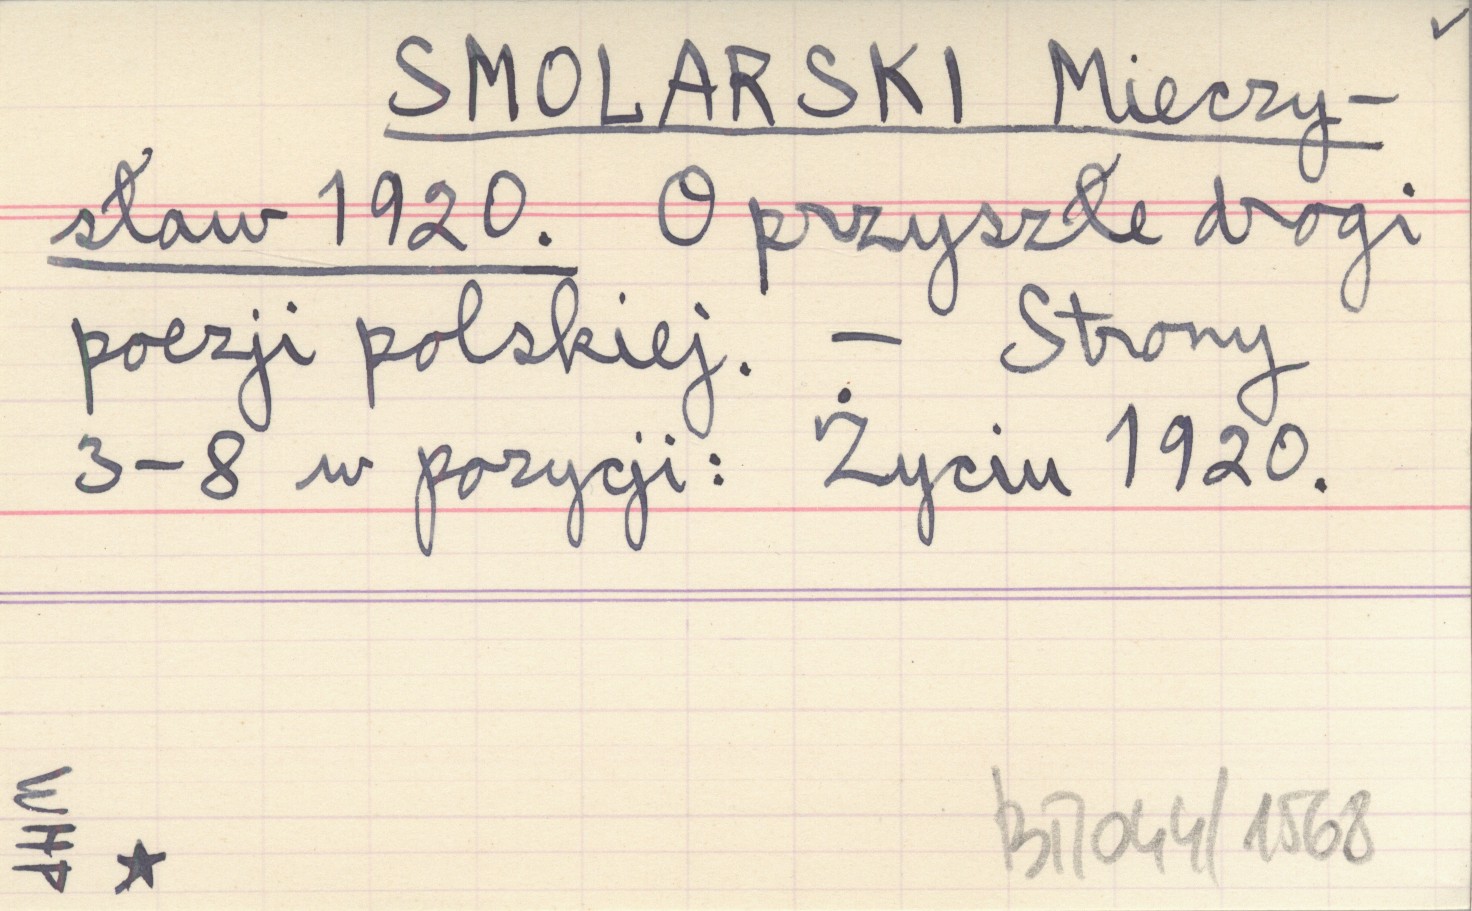 ✓
SMOLARSKI Mieczy-
sław 1920. O przyszłe drogi
poezji polskiej. — Strony
3-8 w pozycji: Życiu 1920.
WHP
★
BI/044/1568